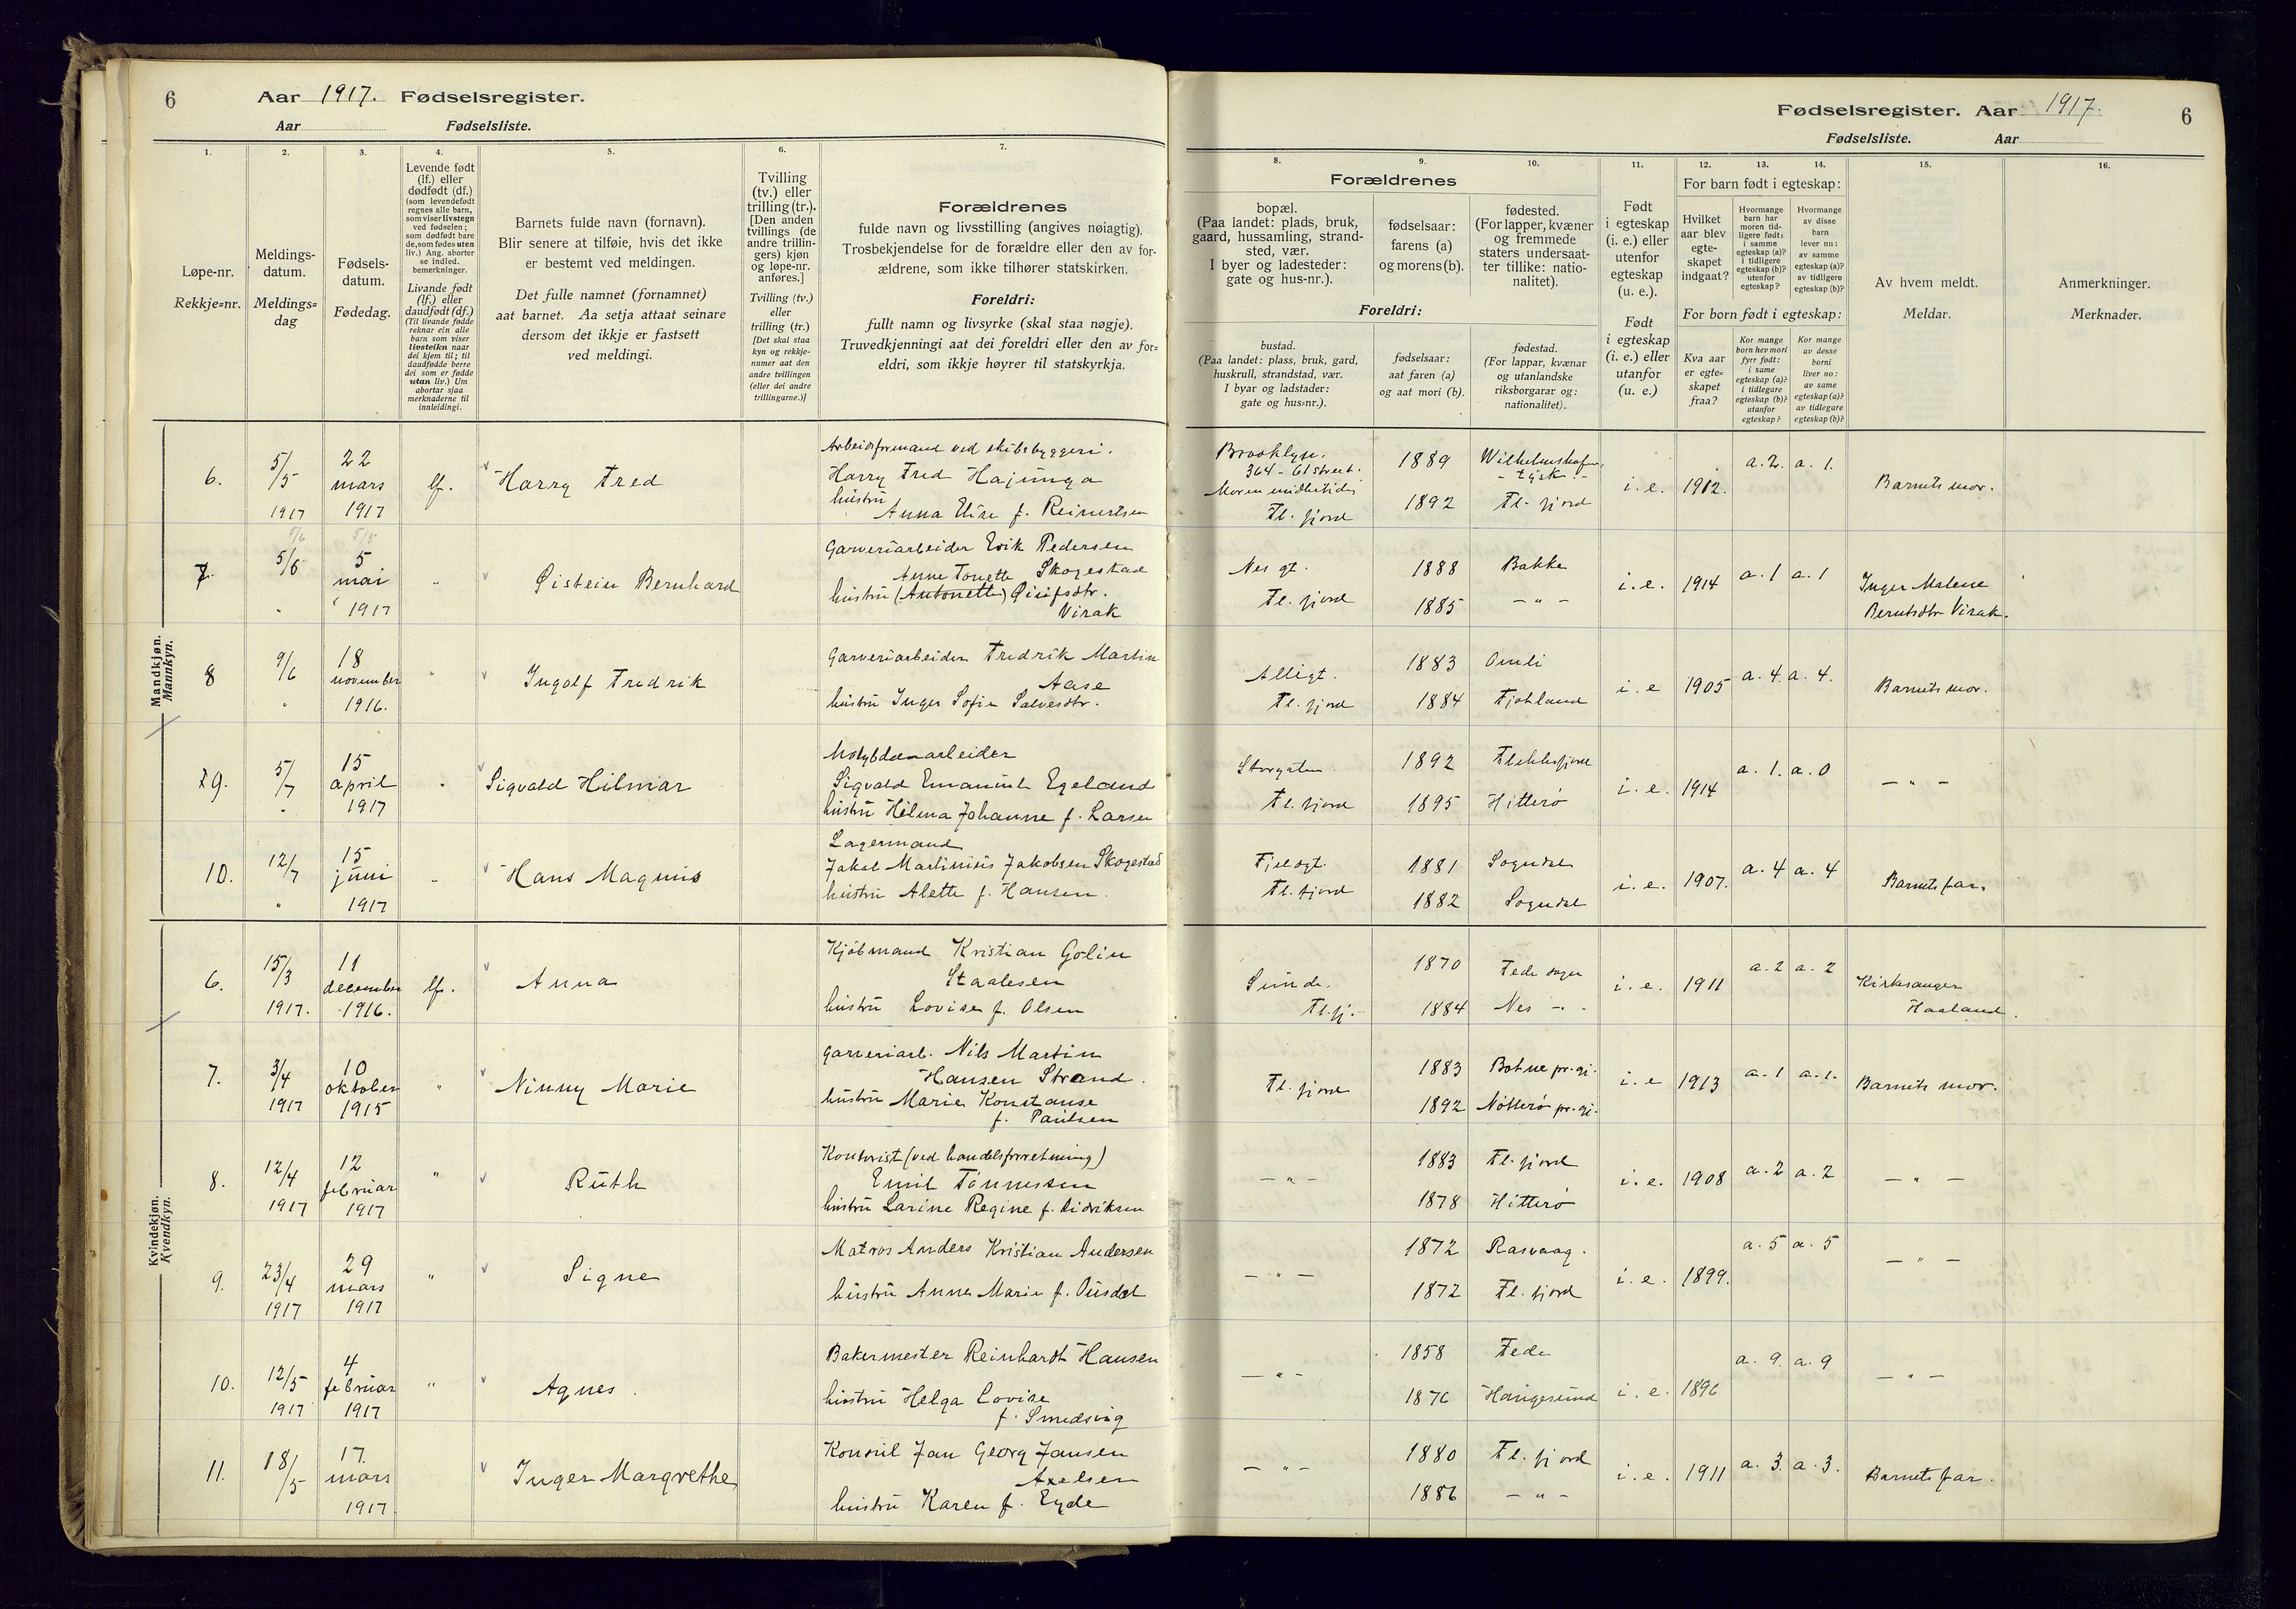 6
Aar 1917. Fødselsregister.
Aar Fødselsliste.
Fødselsregister. Aar 1917.
6
Fødselsliste. Aar
1.
Løpe-nr.
Rekkje=nr.
2.
Meldings-
datum.
Meldings=
dag
3.
Fødsels-
datum.
Fødedag.
4.
Levende født
(lf.) eller
dødfødt (df.)
(som levendefødt
regnes alle barn,
som viser livstegn
ved fødselen;
som dødfødt bare
de, som fødes uten
liv.) Ang. aborter
se indled.
bemerkninger.
Livande født
(lf.) eller
daudfødt (df.)
(Til livande fødde
reknar ein alle
barn som viser
livsteikn naar
dei kjem til; til
daudfødde berre
dei som er fødde
utan liv.) Um
abortar sjaa
merknaderne til
innleidingi.
5.
Barnets fulde navn (fornavn).
Blir senere at tilføie, hvis det ikke
er bestemt ved meldingen.
Det fulle namnet (fornamnet)
aat barnet. Aa setja attaat seinare
dersom det ikkje er fastsett
ved meldingi.
6.
Tvilling
(tv.) eller
trilling (tr.).
[Den anden
tvillings (de
andre trillin-
gers) kjøn
og løpe-nr.
anføres.]
Tvilling (tv.)
eller
trilling (tr.)
[Det skal staa
kyn og rekkje-
numer aat den
andre tvillingen
(eller dei andre
trillingarne.)]
7.
Forældrenes
fulde navn og livsstilling (angives nøiagtig).
Trosbekjendelse for de forældre eller den av for-
ældrene, som ikke tilhører statskirken.
Foreldri:
fullt namn og livsyrke (skal staa nøgje).
Truvedkjenningi aat dei foreldri eller den av for=
eldri, som ikkje høyrer til statskyrkja.
Forældrenes
8.
bopæl.
(Paa landet: plads, bruk,
gaard, hussamling, strand-
sted, vær.
I byer og ladesteder:
gate og hus-nr.).
Foreldri:
bustad.
(Paa landet: plass, bruk, gard,
huskrull, strandstad, vær.
I byar og ladstader:
gate og hus=nr.).
9.
fødselsaar:
farens (a)
og morens (b).
fødselsaar:
aat faren (a)
og aat mori (b).
10.
fødested.
(For lapper, kvæner
og fremmede
staters undersaat-
ter tillike: natio-
nalitet).
fødestad.
(For lappar, kvænar
og utanlandske
riksborgarar og:
nationalitet).
11.
Født
i egteskap
(i. e.) eller
utenfor
egteskap
(u. e.).
Født
i egteskap
(i. e.) eller
utanfor
(u. e.)
For barn født i egteskap:
12.
Hvilket
aar blev
egte-
skapet
indgaat?
For born født i egteskap:
Kva aar
er egte=
skapet
fraa?
13.
Hvormange
barn har
moren tid-
ligere født:
i samme
egteskap (a)?
i tidligere
egteskap (b)?
utenfor
egteskap?
Kor mange
born hev mori
fyrr født:
i same
egteskap (a)?
i tidlegare
egteskap (b)?
utanfor
egteskap?
14.
Hvormange
av disse
barn
lever nu:
av samme
egteskap (a)?
av tidligere
egteskap (b)?
Kor mange
av desse
borni
liver no:
av same
egteskap (a)?
av tidlegare
egteskap (b)?
15.
Av hvem meldt.
Meldar.
16.
Anmerkninger.
Merknader.
Mandkjøn.
Mannkyn.
6. 5/5 1917 22 mars 1917 lf. Harry Fred
Arbeidsformand ved skibsbyggeri.
Harry Fred Hajunga
hustru
Anna Elise f. Reinertsen
Brooklyn.
364 - 61 street.
Moren midlertidig
Fl. fjord
1889 Wilhelmshafen,
- tysk. -
1892 Fl. fjord
i. e. 1912. a. 2. a. 1. Barnets mor.
7. 5/6 " 5 mai 1917 " Øistein Bernhard
Garveriarbeider Erik Pedersen
Anne Tonette Skogestad
hustru (Antonette)
Virak
Nes gt.
Fl. fjord
1888 Bakke
1885 - " -
i. e. 1914 a. 1 a. 1
Inger Malene
Berntsdtr. Virak.
8 9/6 " 18 november 1916. " Ingolf Fredrik
Garveriarbeider Fredrik Martin
Aase
hustru Inger Sofie Salvesdtr.
Alleigt.
Fl. fjord
1883 Omli
1884 Fjotland
i. e 1905 a. 4. a. 4. Barnets mor.
9. 5/7 " 15 april 1917 " Sigvald Hilmar
Molybdænarbeider
Sigvald Emanuel Egeland
hustru Hilma Johanne f. Larsen
Storgaten.
Fl. fjord
1892 Flekkefjord
1895 Hitterø
i. e. 1914 a. 1. a. 0 - " -
10. 12/7 " 15 juni 1917 " Hans Magnus
Lagermand
Jakob Martinius Jakobsen Skogestad
hustru Alette f. Hansen.
Fjeldgt.
Fl. fjord
1881 Sogndal
1882 Sogndal
i. e. 1907. a. 4 a. 4 Barnets far.
Kvindekjøn.
Kvendkyn.
6. 15/3 1917. 11 december 1916. lf. Anna
Kjøbmand Kristian Golin
Staalesen
hustru Lovise f. Olsen
Sunde.
Fl. fj.
1870 Fede sogn
1884 Nes - " -
i. e. 1911 a. 2 a. 2
Kirkesanger
Haaland.
7. 3/4 1917 10 oktober 1915 " Ninny Marie
Garveriarb. Nils Martin
Hansen Strand.
hustru Marie Konstanse
f. Paulsen
Fl. fjord
1883 Botne pr. gj.
1892 Nøtterø pr. gj.
i. e 1913 a. 1 a. 1. Barnets mor.
8. 12/4 1917 12 februar 1917 " Ruth
Kontorist (ved handelsforretning)
Emil Tønnessen
hustru Larine Regine f. Didriksen
- " -
1883 Fl. fjord
1878 Hitterø
i. e. 1908 a. 2 a. 2 - " -
9. 23/4 1917 29 mars 1917 " Signe
Matros Anders Kristian Andersen
hustru Anne Marie f. Ousdal
- " -
1872 Rasvaag.
1872 Fl. fjord
i. e. 1899. a. 5 a. 5 - " -
10. 12/5 1917 4 februar 1917 " Agnes.
Bakermester Reinhardt Hansen
hustru Helga Lovise
f. Smedsvig
- " -
1858 Fede
1876 Haugesund
i. e. 1896 a. 9. a. 9 - " -
11. 18/5 17. mars 1917. Inger Margrethe
Konsul Jan Georg Jansen
Axelsen
hustru Karen f. Eyde
- " -
1880 Fl. fjord
1886 - " -
i. e. 1911 a. 3. a. 3. Barnets far.